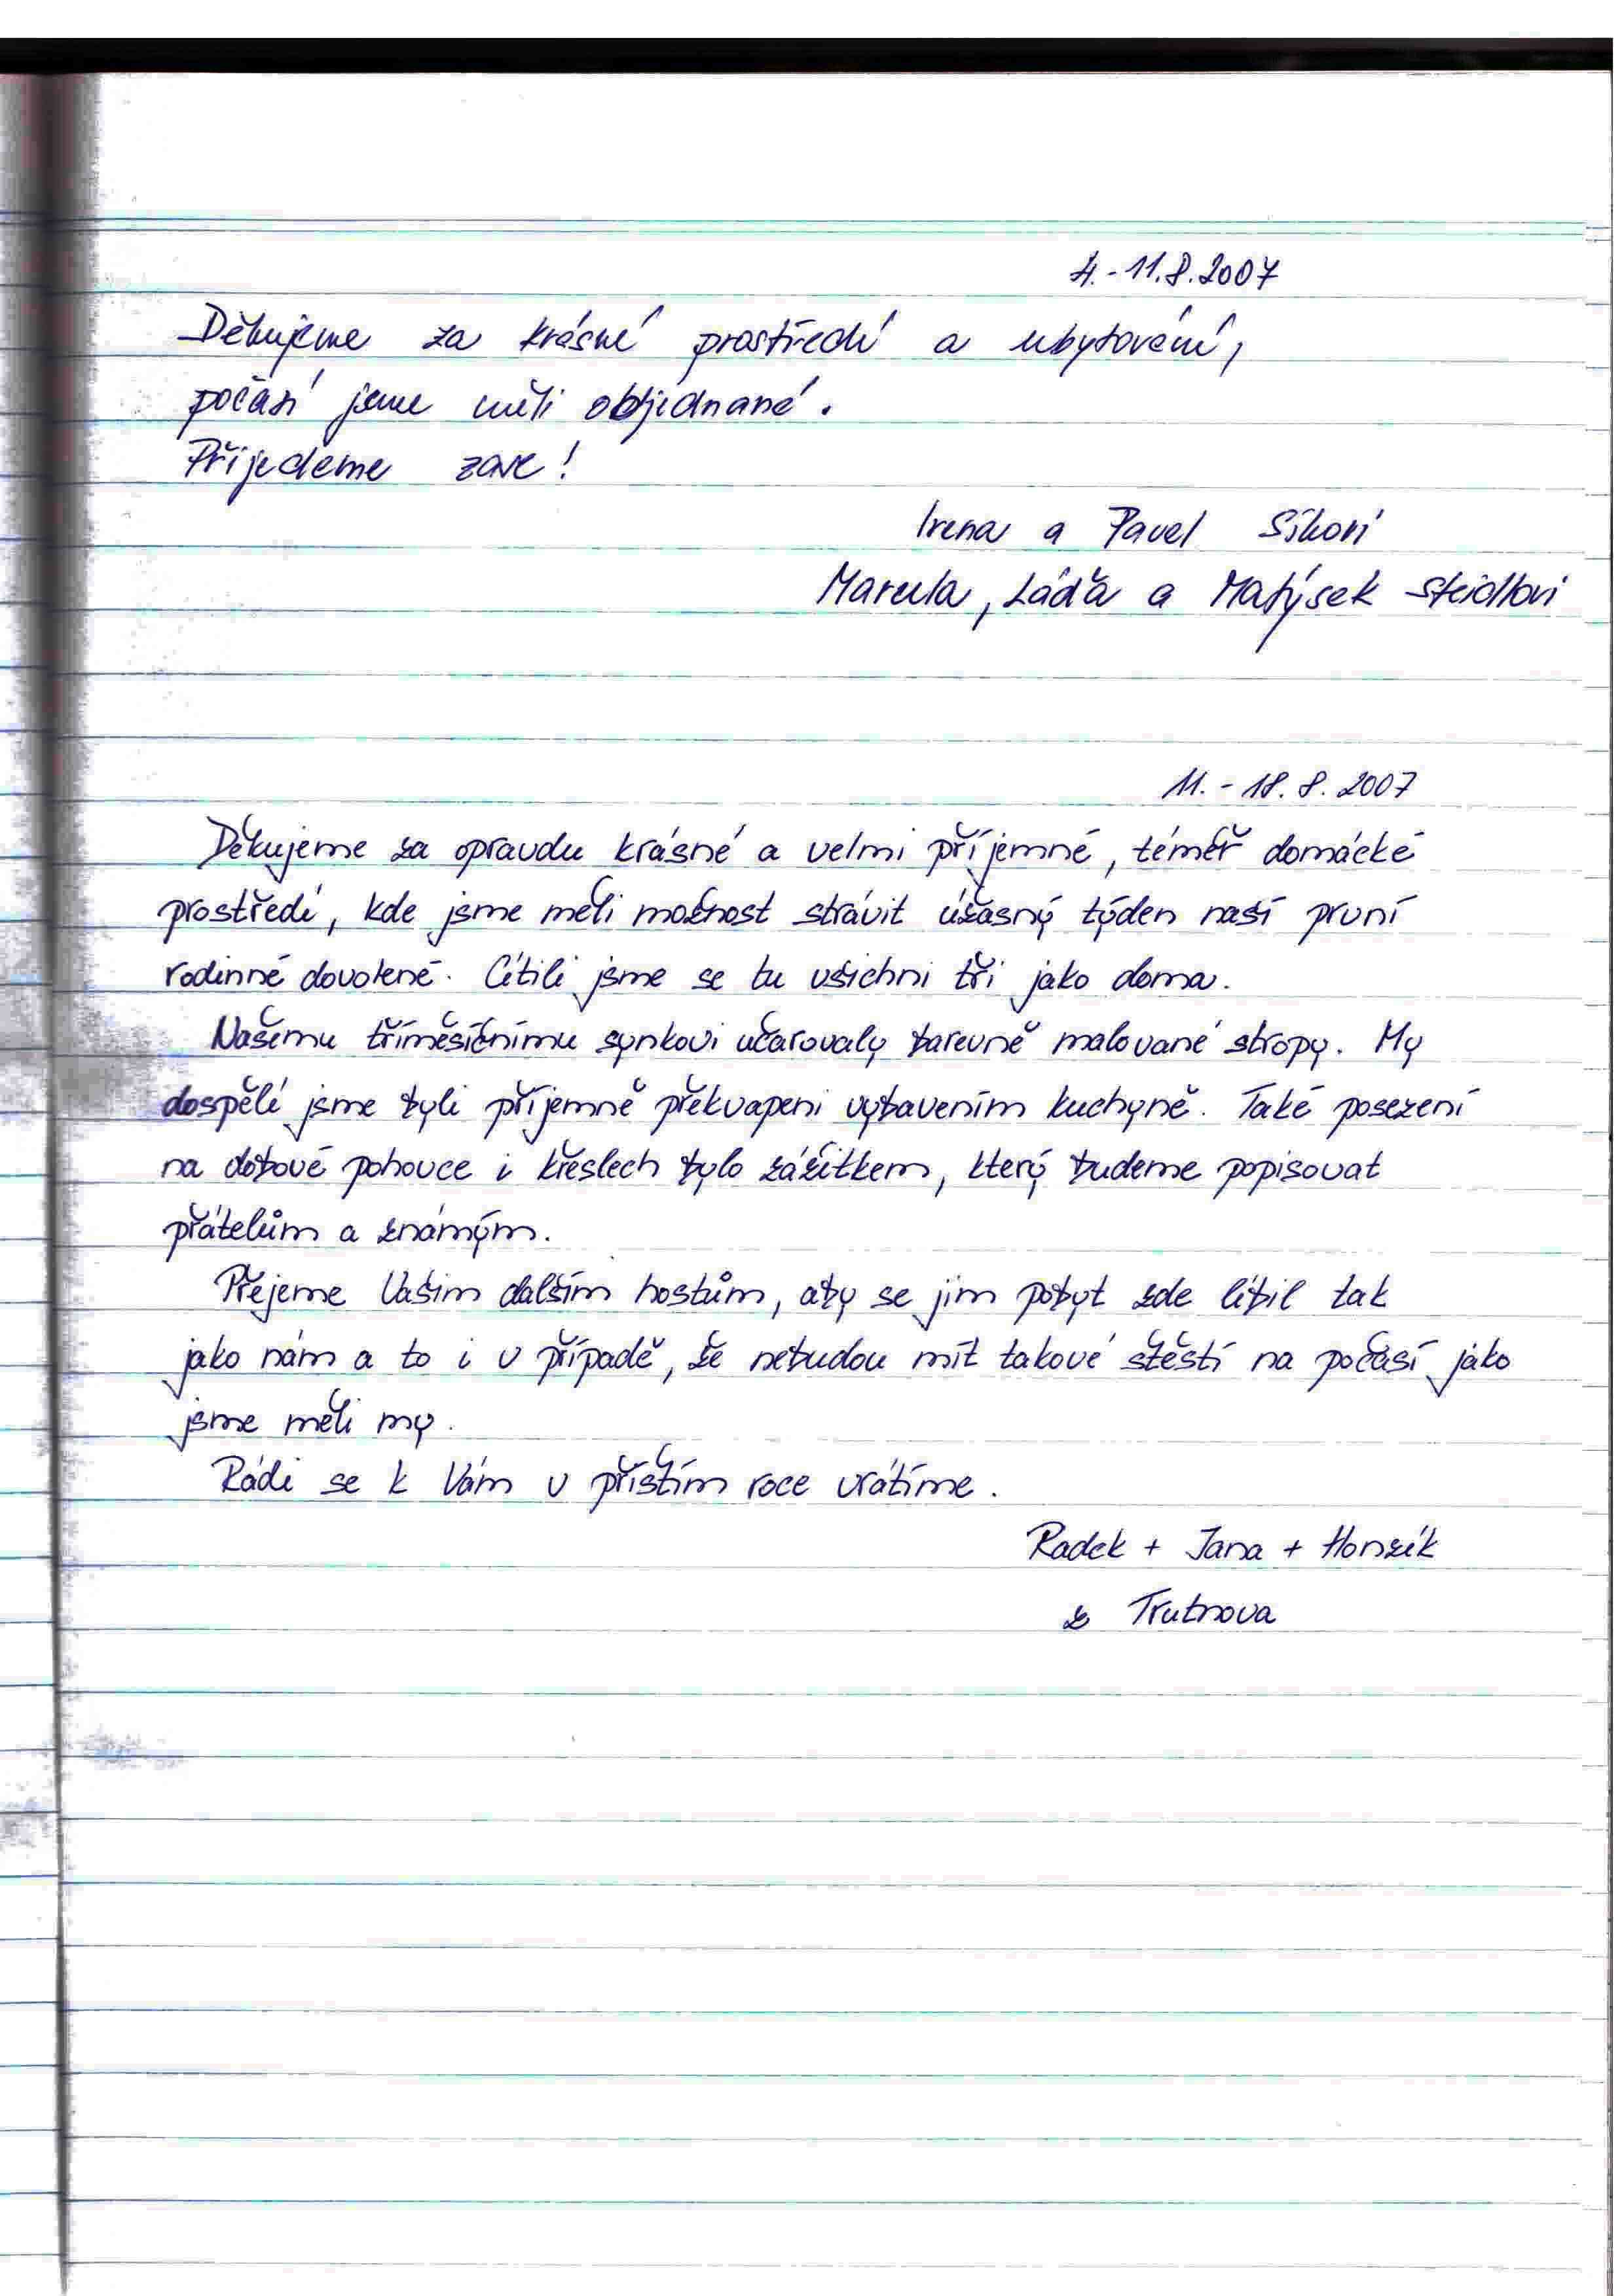 4.-11.8.2007
Děkujeme za krásné prostředí a ubytování,
počasí jsme měli objednané.
Přijedeme zase!
Irena a Pavel Síkovi
Marcela, Láďa a Matýsek Steidlovi
11. - 18. 8. 2007
Děkujeme za opravdu krásné a velmi příjemné, téměř domácké
prostředí, kde jsme měli možnost strávit úžasný týden naší první
rodinné dovolené. Cítili jsme se tu všichni tři jako doma.
Našemu tříměsíčnímu synkovi učarovaly barevně malované stropy. My
dospělí jsme byli příjemně překvapeni vybavením kuchyně. Také posezení
na dobové pohovce i křeslech bylo zážitkem, který budeme popisovat
přátelům a známým.
Přejeme Vašim dalším hostům, aby se jim pobyt zde líbil tak
jako nám a to i v případě, že nebudou mít takové štěstí na počasí jako
jsme měli my.
Rádi se k Vám v příštím roce vrátíme.
Radek + Jana + Honzík
z Trutnova